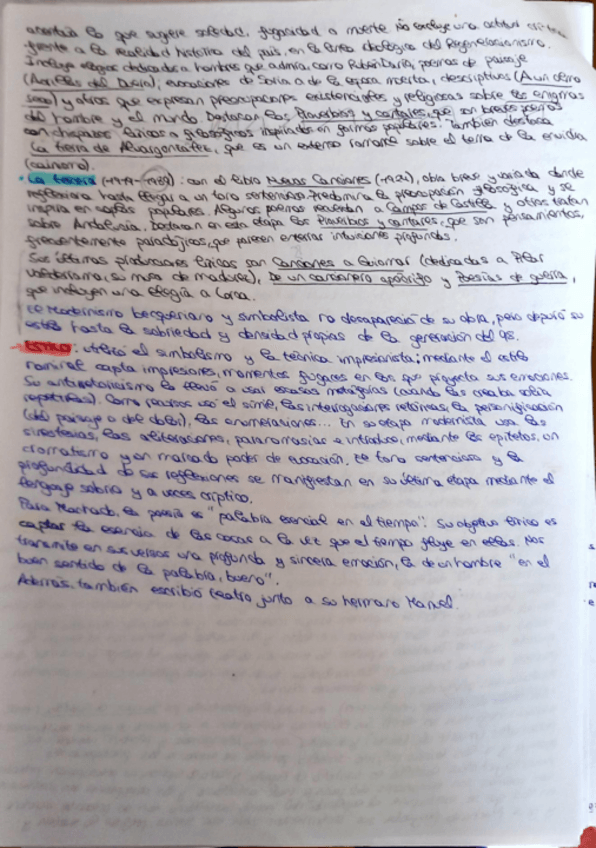 acentúa lo que sugiere soledad, fugacidad o muerte no excluye una actitud crítica
frente a la realidad histórica del país, en la línea ideológica del Regeneracionismo.
Incluye elogios dedicados a hombres que admira, como Rubén Darío, poemas de paisaje
(Orillas del Duero); evocaciones de Soria o de la esposa muerta, descriptivas (A un olmo
seco) y otros que expresan preocupaciones existenciales y religiosas sobre los enigmas
del hombre y el mundo. Destacan los Proverbios y cantares, que son breves poemas
con chispazos líricos o filosóficos inspirados en formas populares. También destaca
La tierra de Alvargonzález, que es un extenso romance sobre el tema de la envidia
(cainismo).
• La tercera (1919-1939): con el libro Nuevas Canciones (1924), obra breve y variada donde
reflexiona hasta llegar a un tono sentencioso. Predomina la preocupación filosófica y se
inspira en coplas populares. Algunos poemas recuerdan a Campos de Castilla y otros tratan
sobre Andalucía. Destacan en esta etapa los Proverbios y cantares, que son pensamientos,
frecuentemente paradójicos, que parecen encerrar intuiciones profundas.
Sus últimas producciones líricas son Canciones a Guiomar (dedicadas a Pilar
Valderrama, su musa de madurez), De un cancionero apócrifo y Poesías de guerra,
que incluyen una elegía a Lorca.
El Modernismo becqueriano y simbolista no desapareció de su obra, pero depuró su
estilo hasta la sobriedad y densidad propias de la generación del 98.
- ESTILO: utilizó el simbolismo y la técnica impresionista; mediante el estilo
nominal capta impresiones, momentos fugaces en los que proyecta sus emociones.
Su antirretoricismo le llevó a usar escasas metáforas (cuando las creaba solía
repetirlas). Como recursos usó el símil, las interrogaciones retóricas, la personificación
(del paisaje o del dolor), las enumeraciones... En su etapa modernista usa las
sinestesias, las aliteraciones, paronomasias e introduce, mediante los epítetos, un
cromatismo y un marcado poder de evocación. El tono sentencioso y la
profundidad de sus reflexiones se manifiestan en su última etapa mediante el
lenguaje sobrio y a veces críptico.
Para Machado, la poesía es "palabra esencial en el tiempo". Su objetivo lírico es
captar la esencia de las cosas a la vez que el tiempo fluye en ellas. Nos
transmite en sus versos una profunda y sincera emoción, la de un hombre "en el
buen sentido de la palabra, bueno".
Además, también escribió teatro junto a su hermano Manuel.